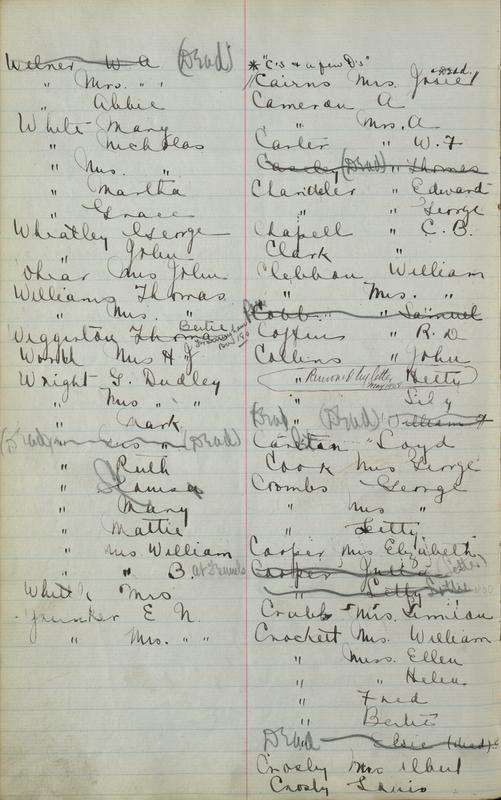 Welner W A (Dead)
" Mrs. " "
" Abbie
White Mary
" Nicholas
" Mrs. "
" Martha
" Grace
Wheatley George
" John
Mrs John
Williams Thomas
" Mrs. "
Wiggerton Thomas Bertie
Worth Mrs H J
Wright G. Dudley
" Mrs " "
" Mark
(Dead) " " (Dead)
" Ruth
" Louisa
" Mary
" Mattie
" Mrs. William
" " B.
White Mrs
Younker E N.
" Mrs. " "
* "C's & a few D's"
Cairns Mrs. Josie Dead
Cameron A
" Mrs. A
Carter " W. F
(Dead) " Thomas
Chandler " Edward
" George
Chapell " C. B.
Clark "
Clebbon William
" Mrs. "
Cobb " Samuel
Coffins " R. D
Collins " John
Removed by letter Hetty
" Lily
Dead " (Dead) William H
Carltan Loyd
Cook Mrs George
Coombs George
" Mrs "
" Letty
Cooper Mrs Elizabeth
Cooper Julia (Letter)
" Letty Letter
Crabb Mrs.
Crockett Mrs. William
" Miss. Ellen
" " Helen
" Fred
" Bertie
Dead Elsie (dead)
Crosby Mrs Albert
Crosby Louis